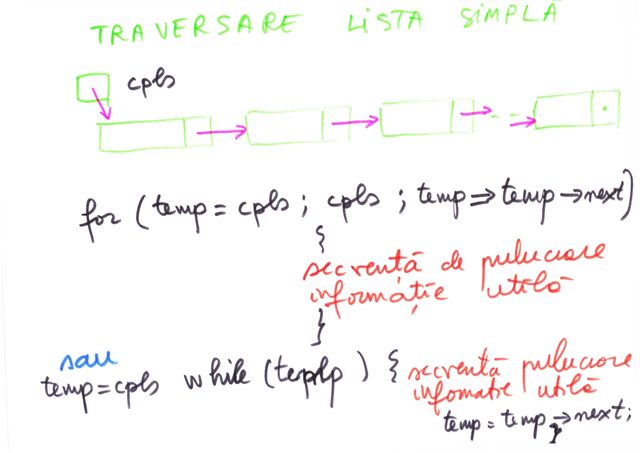 TRAVERSARE LISTA SIMPLĂ
cpls
for (temp = cpls ; cpls ; temp => temp → next)
{
secvență de prelucrare
informație utilă
}
sau
temp = cpls while ( ) { secvență prelucrare
infomatie utilă
temp = temp → next;
}